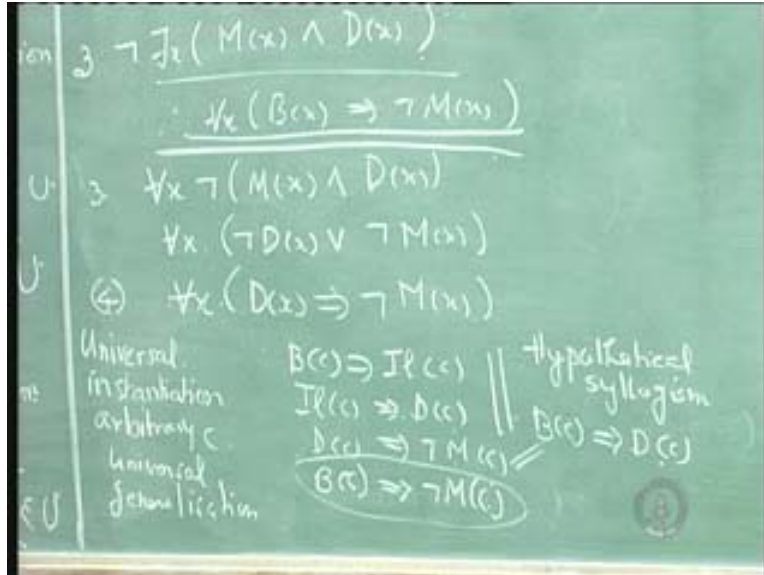 ion 3 ¬∃x ( M(x) ∧ D(x) )
∴ ∀x ( B(x) ⇒ ¬M(x) )
U 3 ∀x ¬( M(x) ∧ D(x) )
∀x. ( ¬D(x) ∨ ¬M(x) )
U ④ ∀x. ( D(x) ⇒ ¬M(x) )
Universal.
instantiation
arbitrary c
universal
generalization
B(c) ⇒ Il(c)
Il(c) ⇒ D(c)
D(c) ⇒ ¬M(c)
B(c) ⇒ ¬M(c)
Hypothetical
syllogism
B(c) ⇒ D(c)
∈ U